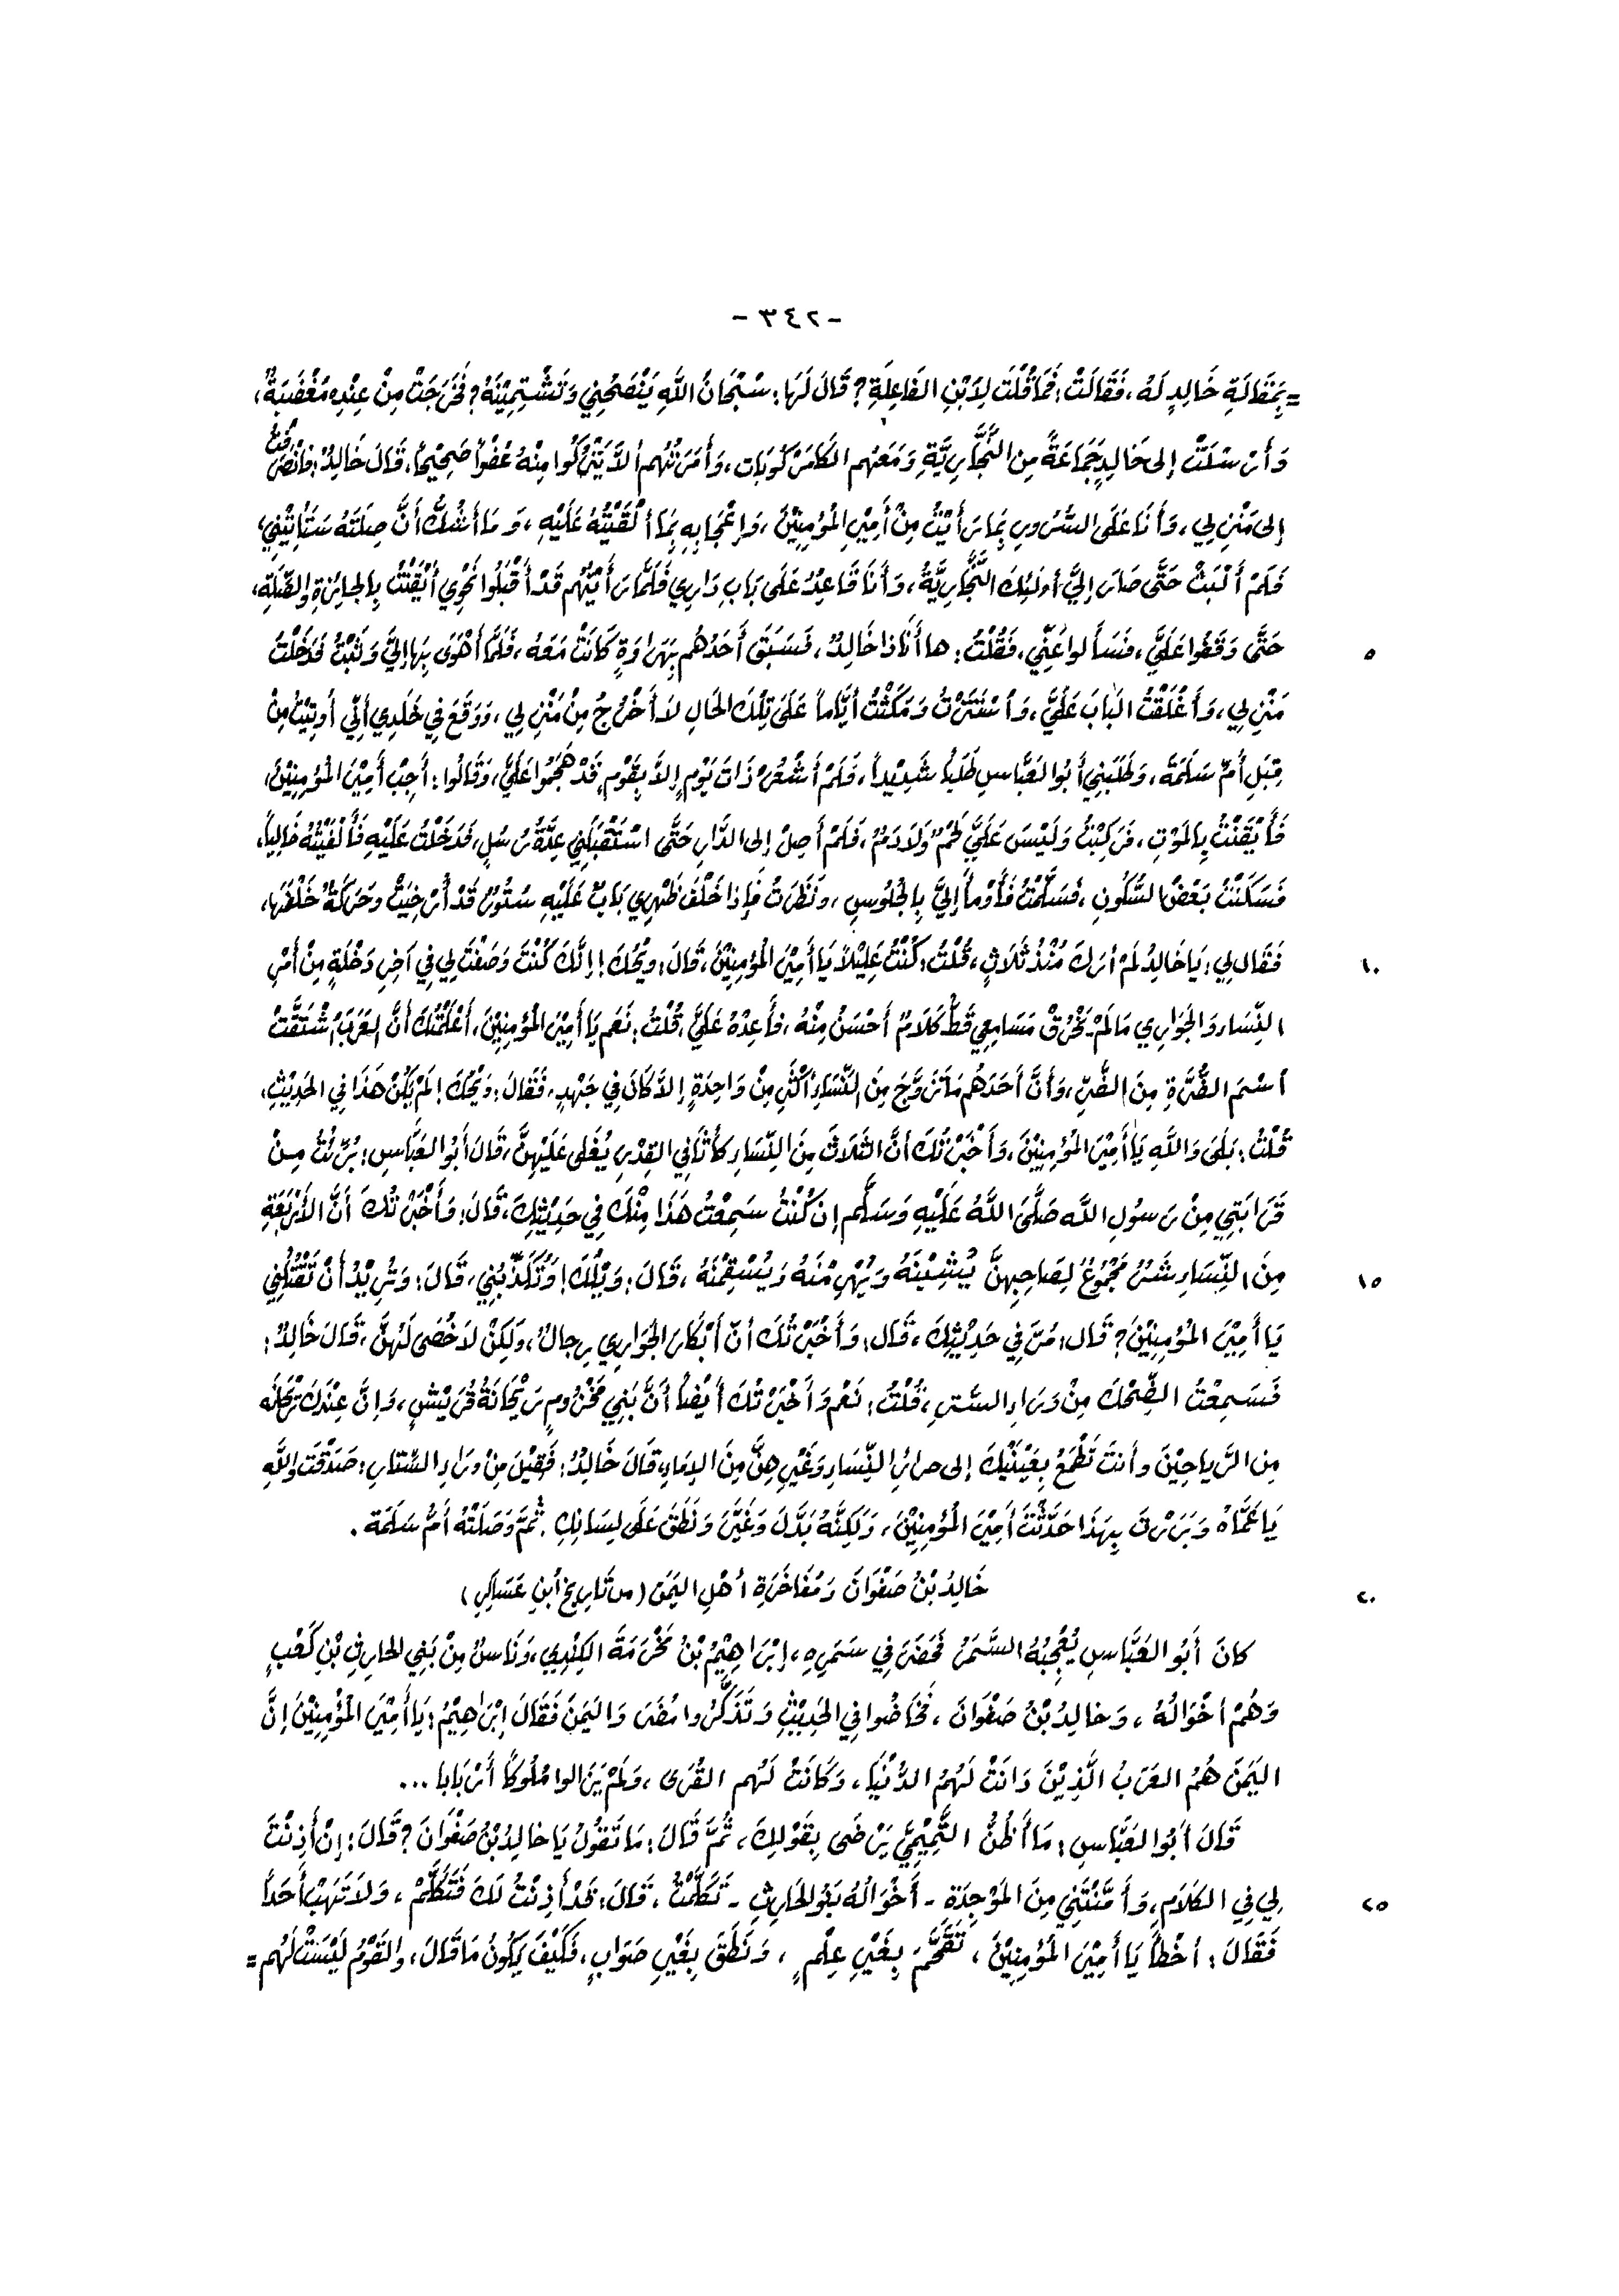 - ٣٤٢ -
= بِمَقَالَةِ خَالِدٍ لَهُ، فَقَالَتْ: فَمَا قُلْتَ لِابْنِ الفَاعِلَةِ؟ قَالَ لَهَا: سُبْحَانَ اللَّهِ يَنْصَحُنِي وَتَشْتِمِيْنَهُ؟ فَخَرَجَتْ مِنْ عِنْدِهِ مُغْضَبَةً،
وَأَرْسَلَتْ إلى خَالِدٍ جَمَاعَةً مِنَ النَّجَّارِيَّةِ وَمَعَهُم الكَامَرْكُوبَات، وَأَمَرَتْهُم ألاَّ يَتْرُكُوا مِنْهُ عُضْواً صَحِيْحاً، قَالَ خَالِدٌ: فانْصَرَفْتُ
إلى مَنْزِلِي، وَأَنَا عَلَى السُّرُورِ بِمَا رَأَيْتُ مِنْ أَمِيْرِ المُؤمِنِيْنَ، وَإعْجَابِهِ بِمَا ألْقَيْتُهُ عَلَيْهِ، وَمَا أَشُكُّ أَنَّ صِلَتَهُ سَتَأتِيْنِي،
فَلَمْ أَلْبَثْ حَتَّى صَارَ إلَيَّ أُولَئِكَ النَّجَّارِيَّةُ، وَأَنَا قَاعِدٌ عَلَى بَابِ دَارِي فَلَمَّا رَأَيْتُهُم قَدْ أَقْبَلُوا نَحْوِي أَيْقَنْتُ بِالجائِزةِ والصِّلَةِ،
حَتَّى وَقَفُوا عَلَيَّ، فَسَألوا عَنِّي، فَقُلْتُ: ها أَنَاذا خَالِدٌ، فَسَبَقَ أَحَدُهُم بِهَرَاوَةٍ كَانَتْ مَعَهُ، فَلَمَّا أَهْوَى بِهَا إلَيَّ وَثَبْتُ فَدَخَلْتُ
٥
مَنْزِلِي، وَأَغْلَقْتُ البَابَ عَلَيَّ، وَاسْتَتَرْتُ وَمَكَثْتُ أيَّاماً عَلَى تِلْكَ الحَالِ لاَ أَخْرُجُ مِنْ مَنْزِلِي، وَوَقَعَ فِي خَلَدِي أنِّي أُوتِيْتُ مِنْ
قِبَلِ أُمِّ سَلَمَةَ، وَطَلَبَنِي أَبُو العَبَّاسِ طَلَباً شَدِيْداً، فَلَمْ أَشْعُرْ ذَاتَ يَوْمٍ إلاَّ بِقَوْمٍ قَدْ هَجَمُوا عَلَيَّ، وَقَالُوا: أَجِبْ أَمِيْرَ المُؤمِنِيْنَ،
فَأيْقَنْتُ بِالمَوْتِ، فَرَكِبْتُ وَلَيْسَ عَلَيَّ لَحْمٌ وَلاَ دَمٌ، فَلَمْ أَصِلْ إلى الدَّارِ حَتَّى اسْتَقْبَلَنِي عِدَّةُ رُسُلٍ، فَدَخَلْتُ عَلَيْهِ فَألْفَيْتُهُ خَالِياً،
فَسَكَنْتُ بَعْضَ السُّكُونِ، فَسَلَّمْتُ فَأَوْمأَ إلَيَّ بِالجُلُوسِ، وَنَظَرْتُ فَإِذا خَلْفَ ظَهْرِي بَابٌ عَلَيْهِ سُتُورٌ قَدْ أُرْخِيَتْ وَحَرَكَةٌ خَلْفَهَا،
فَقَال لِي: يَا خَالِدُ لَمْ أرَكَ مُنْذُ ثَلاثٍ، قُلْتُ: كُنْتُ عَلِيْلاً يَا أَمِيْرَ المُؤمِنِيْنَ، قَالَ: وَيْحَكَ! إنَّكَ كُنْتَ وَصَفْتَ لِي فِي آخِرِ دَخْلَةٍ مِنْ أَمْرِ
١٠
النِّسَاءِ وَالجَوَارِي مَا لَمْ يَخْرُقْ مَسَامِعِي قَطُّ كَلاَمٌ أَحْسَنُ مِنْهُ، فَأَعِدْهُ عَلَيَّ، قُلْتُ: نَعَم يَا أَمِيْرَ المُؤمِنِيْنَ، أَعْلَمْتُكَ أَنَّ العَرَبَ اشْتَقَّتْ
اسْمَ الضُّرَّةِ مِنَ الضُّرِّ، وَأَنَّ أَحَدَهُم مَا تَزَوَّجَ مِنَ النِّسَاءِ أكْثَرَ مِنْ وَاحِدَةٍ إلاَّ كَانَ فِي جَهْدٍ، فَقَالَ: وَيْحَكَ! لَمْ يَكُنْ هَذَا فِي الحَدِيْثِ،
قُلْتُ: بَلَى وَاللَّهِ يَا أَمِيْرَ المُؤمِنِيْنَ، وَأَخْبَرْتُكَ أنَّ الثَلاثَ مِنَ النِّسَاءِ كأثَافِي القِدْرِ يُغْلَى عَلَيْهِنَّ، قَالَ أَبُو العَبَّاسِ: بَرِئْتُ مِنْ
قَرَابَتِي مِنْ رَسُولِ اللَّه صَلَّى اللَّهُ عَلَيْهِ وَسَلَّم إن كُنْتُ سَمِعْتُ هَذَا مِنْكَ فِي حَدِيْثِكَ، قَالَ: وَأَخْبَرْتُكَ أَنَّ الأرْبَعَةِ
مِنَ النِّسَاءِ شَرٌّ مَجْمُوعٌ لِصَاحِبِهِنَّ يُشِبْنَهُ وَيُهْرِمْنَهُ وَيُسْقِمْنَهُ، قَالَ: وَيْلَكَ! وَتُكَذِّبُنِي، قَالَ: وَتُرِيْدُ أَنْ تَقْتُلَنِي
١٥
يَا أَمِيْرَ المُؤمِنِيْنَ؟ قَال: مُرَّ فِي حَدِيْثِكَ، قَال: وَأَخْبَرْتُكَ أنّ أَبْكَارَ الجَوَارِي رِجالٌ، وَلَكِنْ لاَ خُصَى لَهُنَّ، قَالَ خَالِدٌ:
فَسَمِعْتُ الضِّحْكَ مِنْ وَرَاءِ السِّتْرِ، قُلْتُ: نَعَمْ وَأَخْبَرْتُكَ أيْضاً أنَّ بَنِي مَخْزُومٍ رَيْحَانَةُ قُرَيْشٍ، وَإنَّ عِنْدَكَ رَيْحَانَةً
مِن الرَّياحِيْنَ وأَنتَ تَطْمَعُ بِعَيْنَيْكَ إلى حرائرِ النِّسَاءِ وَغَيْرِهِنَّ مِنَ الإمَاءِ، قَالَ خَالِدٌ: فَقِيْلَ مِنْ وَرَاءِ السِّتَارِ: صَدَقْتَ واللَّهِ
يَا عَمَّاهُ وَبَرَرْتَ بِهَذَا حَدَّثْتَ أَمِيْرَ المُؤمِنِيْنَ، وَلَكِنَّهُ بَدَّلَ وَغَيَّرَ وَنَطَقَ عَلَى لِسَانِكِ. ثُمَّ وَصَلَتْهُ أُمُّ سَلَمَةَ.
خَالِدُ بْنُ صَفْوَانَ وَمُفَاخَرَةِ أهْلِ اليَمَنِ (من تَارِيخِ ابنِ عَسَاكِرِ)
٢٠
كانَ أَبُو العَبَّاسِ يُعْجِبُهُ السَّمَرُ فَحَضَرَ فِي سَمَرِهِ، إبْرَاهِيْمُ بْنُ مَخْرَمَةَ الكِنْدِي، وَنَاسٌ مِنْ بَنِي الحَارِثِ بْنِ كَعْبٍ
وَهُمْ أخْوَالُهُ، وَخالِدُ بْنُ صَفْوَانَ، فَخَاضُوا فِي الحَدِيْثِ وَتَذَكَّرُوا مُضَرَ وَاليَمَنَ فَقَالَ إبْرَاهِيْمُ: يَا أَمِيْرَ المُؤمِنِيْنَ إنَّ
اليَمَنَ هُمُ العَرَبُ الَّذِيْنَ دَانَتْ لَهُمُ الدُّنْيَا، وَكَانَتْ لَهُم القُرَى، وَلَمْ يَزَالوا مُلُوكاً أرْبَابا ...
قَالَ أَبُو العَبَّاسِ: مَا أَظُنُّ التَّمِيْمِيَّ يَرْضَى بِقَوْلِكَ، ثُمَّ قَالَ: مَا تَقُولُ يَا خالِدُ بْنُ صَفْوَانَ؟ قَالَ: إنْ أَذِنْتَ
لِي فِي الكَلاَمِ، وَأَمَّنْتَنِي مِنَ المَوْجِدَةِ - أَخْوَالُهُ بَنُو الحَارِثِ - تَكَلَّمْتُ، قَالَ: قَدْ أَذِنْتُ لَكَ فَتَكَلَّمْ، وَلاَ تَهَبْ أَحَداً
٢٥
فَقَالَ: أخْطأَ يَا أَمِيْرَ المُؤمِنِيْنَ، تَقَحَّمَ بِغَيْرِ عِلْمٍ، وَنَطَقَ بِغَيْرِ صَوَابٍ، فَكَيْفَ يَكُونُ مَا قَالَ، والقَوْمُ لَيْسَتْ لَهُم =